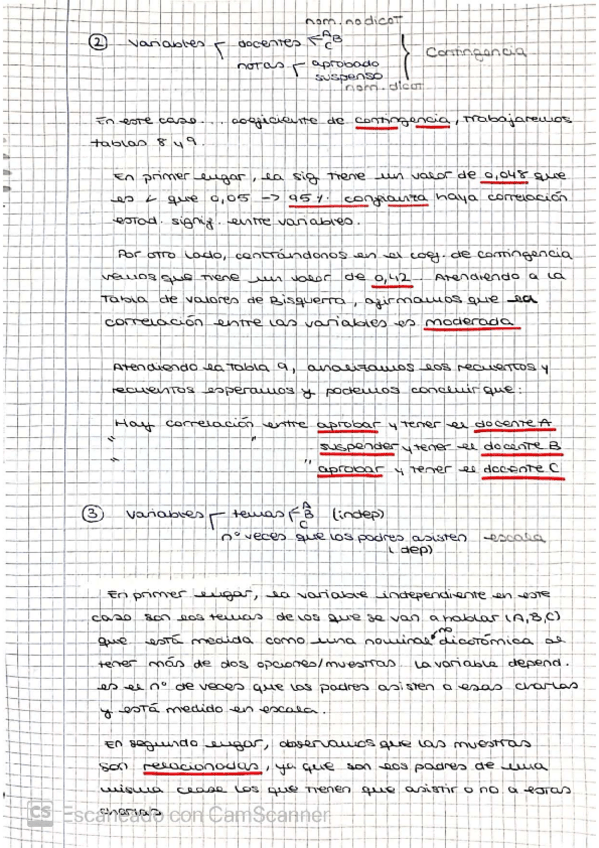 nom. no dicot
② variables docentes A B
C
notas aprobado
suspenso
nom. dicot
Contingencia
En este caso... coeficiente de contingencia, trabajaremos
tablas 8 y 9.
En primer lugar, la sig tiene un valor de 0,048 que
es < que 0,05 -> 95% confianza haya correlación
estad. signif. entre variables.
Por otro lado, centrándonos en el coef. de contingencia
vemos que tiene un valor de 0,42. Atendiendo a la
tabla de valores de Bisquerra, afirmamos que la
correlación entre las variables es moderada
Atendiendo la tabla 9, analizamos los recuentos y
recuentos esperamos y podemos concluir que:
Hay correlación entre aprobar y tener el docente A
" " suspender y tener el docente B
" " aprobar y tener el docente C
③ variables temas A B C (indep)
nº veces que los padres asisten escala
(dep)
En primer lugar, la variable independiente en este
caso son los temas de los que se van a hablar (A,B,C)
que está medida como una nominal no dicotómica al
tener más de dos opciones/muestras. La variable depend.
es el nº de veces que los padres asisten a esas charlas
y está medido en escala.
En segundo lugar, observamos que las muestras
son relacionadas, ya que son los padres de una
misma clase los que tienen que asistir o no a estas
charlas
CS Escaneado con CamScanner